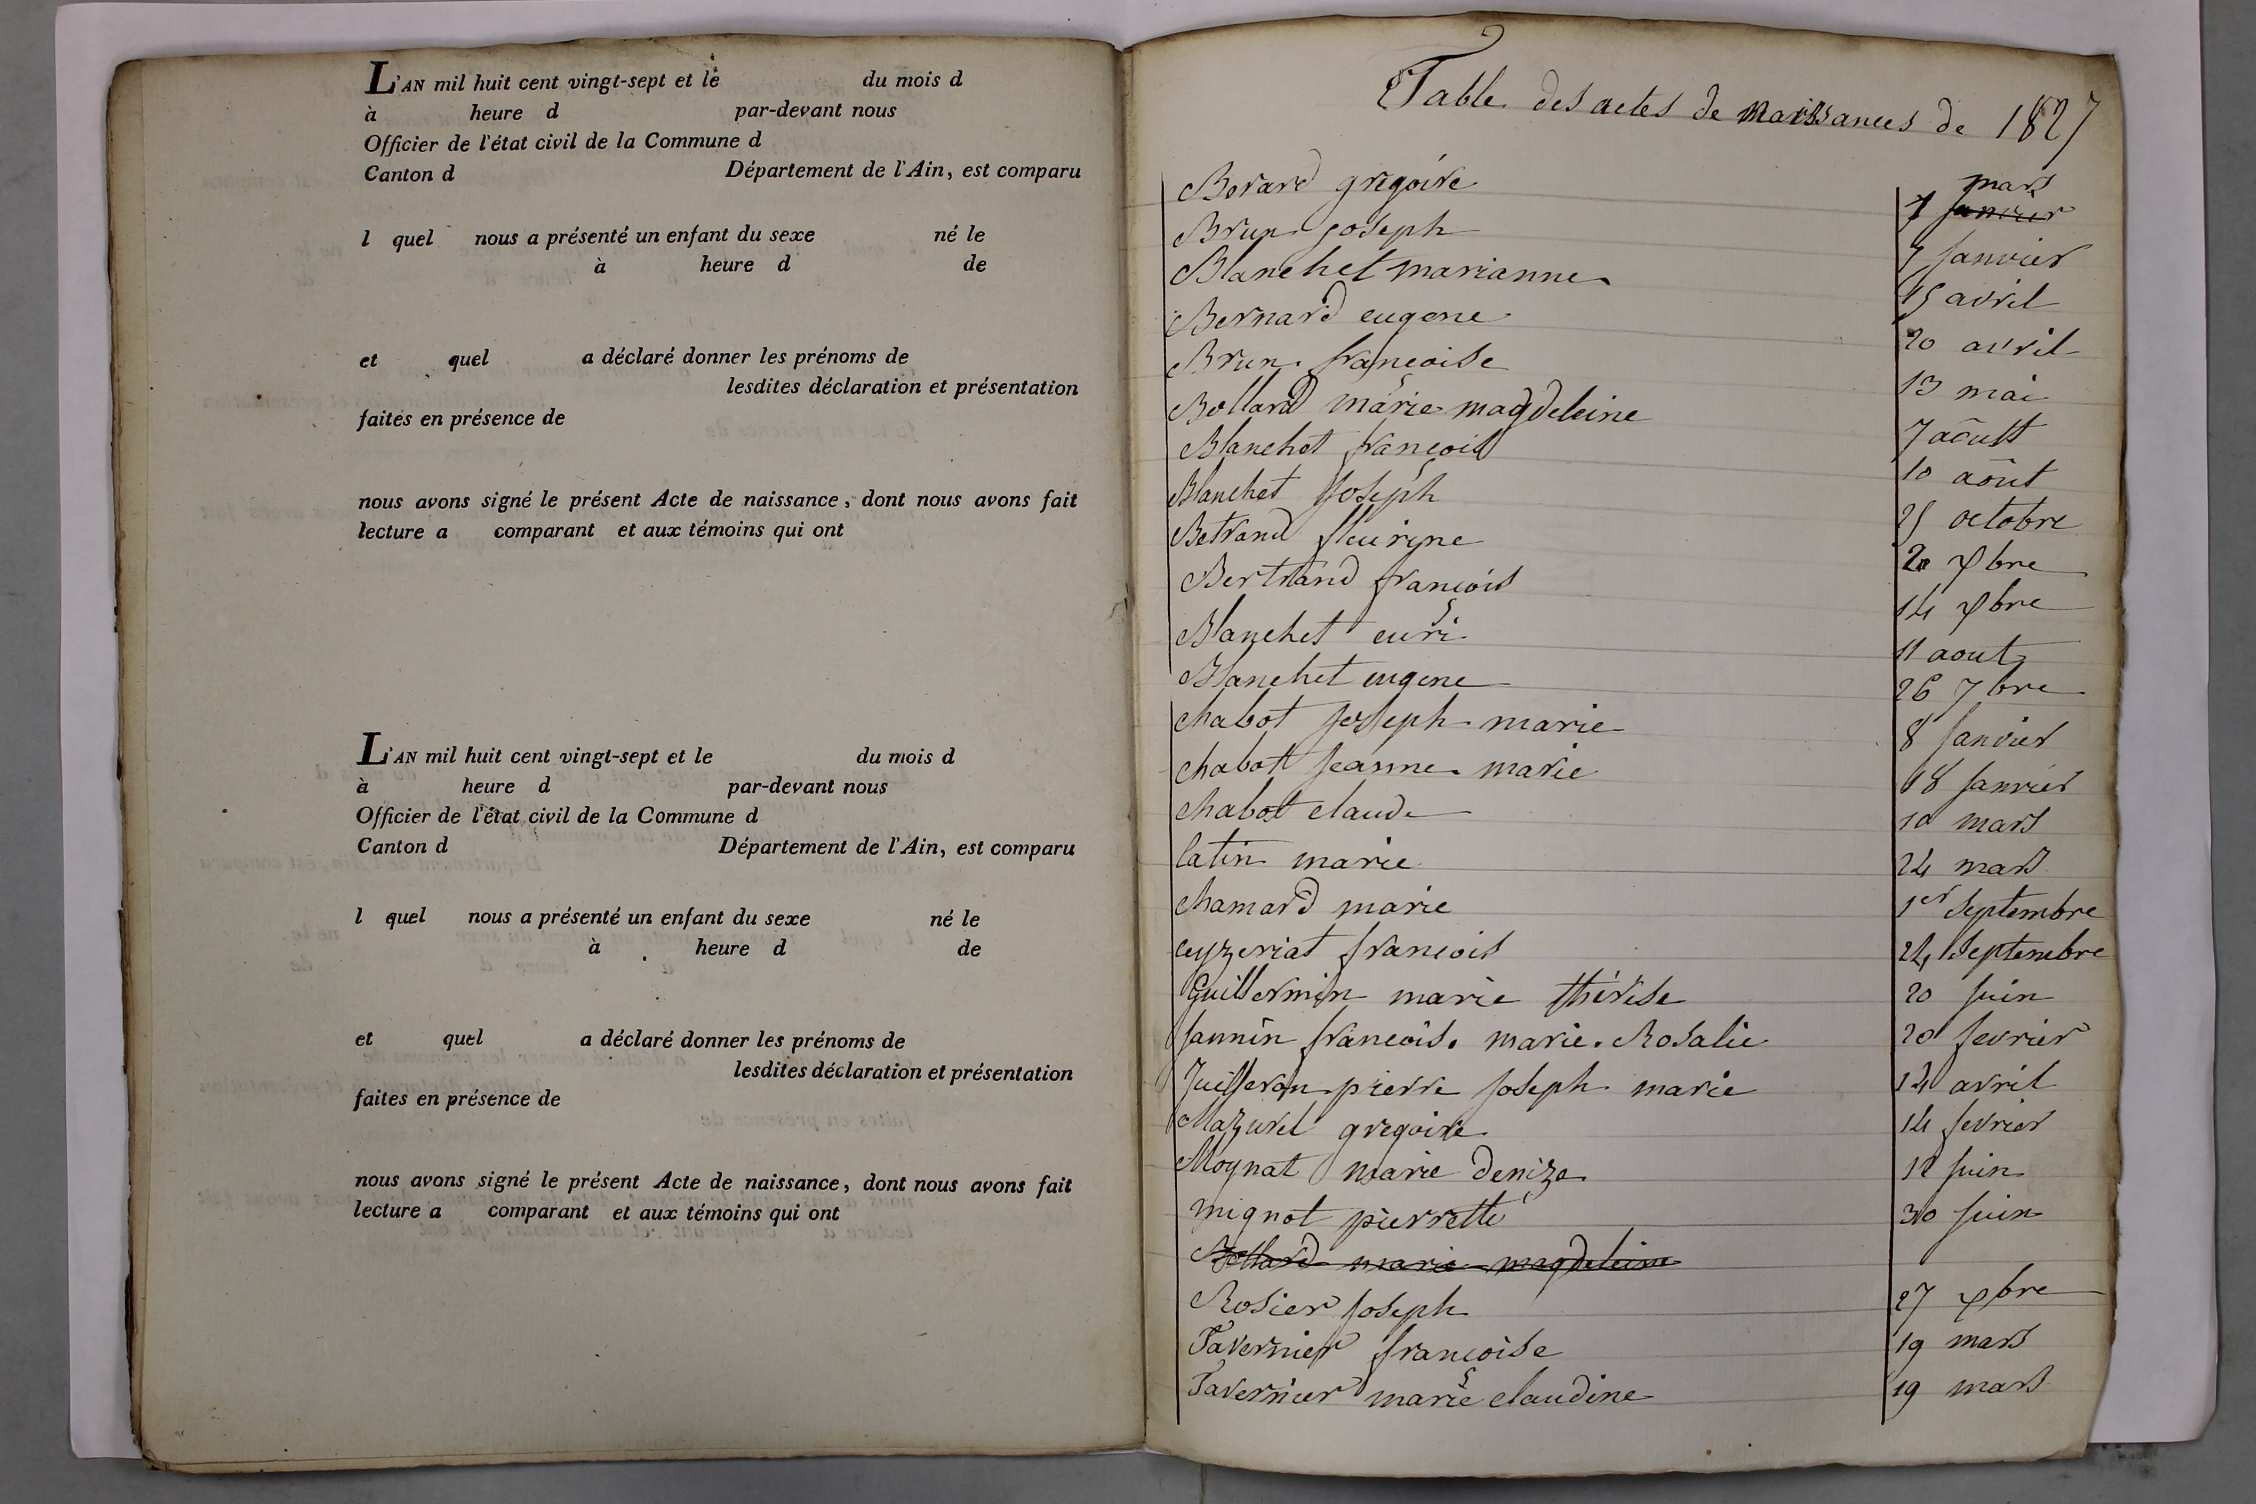 L'AN mil huit cent vingt-sept et le du mois d
à heure d par-devant nous
Officier de l'état civil de la Commune d
Canton d Département de l'Ain, est comparu
l quel nous a présenté un enfant du sexe né le
à heure d de
et quel a déclaré donner les prénoms de
lesdites déclaration et présentation
faites en présence de
nous avons signé le présent Acte de naissance, dont nous avons fait
lecture a comparant et aux témoins qui ont
L'AN mil huit cent vingt-sept et le du mois d
à heure d par-devant nous
Officier de l'état civil de la Commune d
Canton d Département de l'Ain, est comparu
l quel nous a présenté un enfant du sexe né le
à heure d de
et quel a déclaré donner les prénoms de
lesdites déclaration et présentation
faites en présence de
nous avons signé le présent Acte de naissance, dont nous avons fait
lecture a comparant et aux témoins qui ont
Table des actes de naissances de 1827
mars
Borard grégoire 7 janvier
Brun joseph 7 janvier
Blanchet marianne 15 avril
Bernard eugene 20 avril
Brun françoise 13 mai
Bollard marie magdeleine 7 aôust
Blanchet françois 10 aôut
Blanchet joseph 25 octobre
Betrand fleurine 20 9bre
Bertrand françois 14 9bre
Blanchet euri 11 aout
Blanchet eugene 26 7bre
chabot joseph marie 8 janvier
chabot jeanne marie 18 janvier
chabot claude 10 mars
Catin marie 24 mars
chamard marie 1er septembre
ceyzeriat francois 24 septembre
Guillermin marie thérèse 20 juin
jannin francois. marie. Rosalie 20 fevrier
Juilleron pierre joseph marie 14 avril
Mazurel gregoire 14 fevrier
Moynat marie denize 12 juin
mignot pierrette 30 juin
Bollard marie magdeleine
Rosier joseph 27 9bre
Tavernier françoise 19 mars
Tavernier marie claudine 19 mars